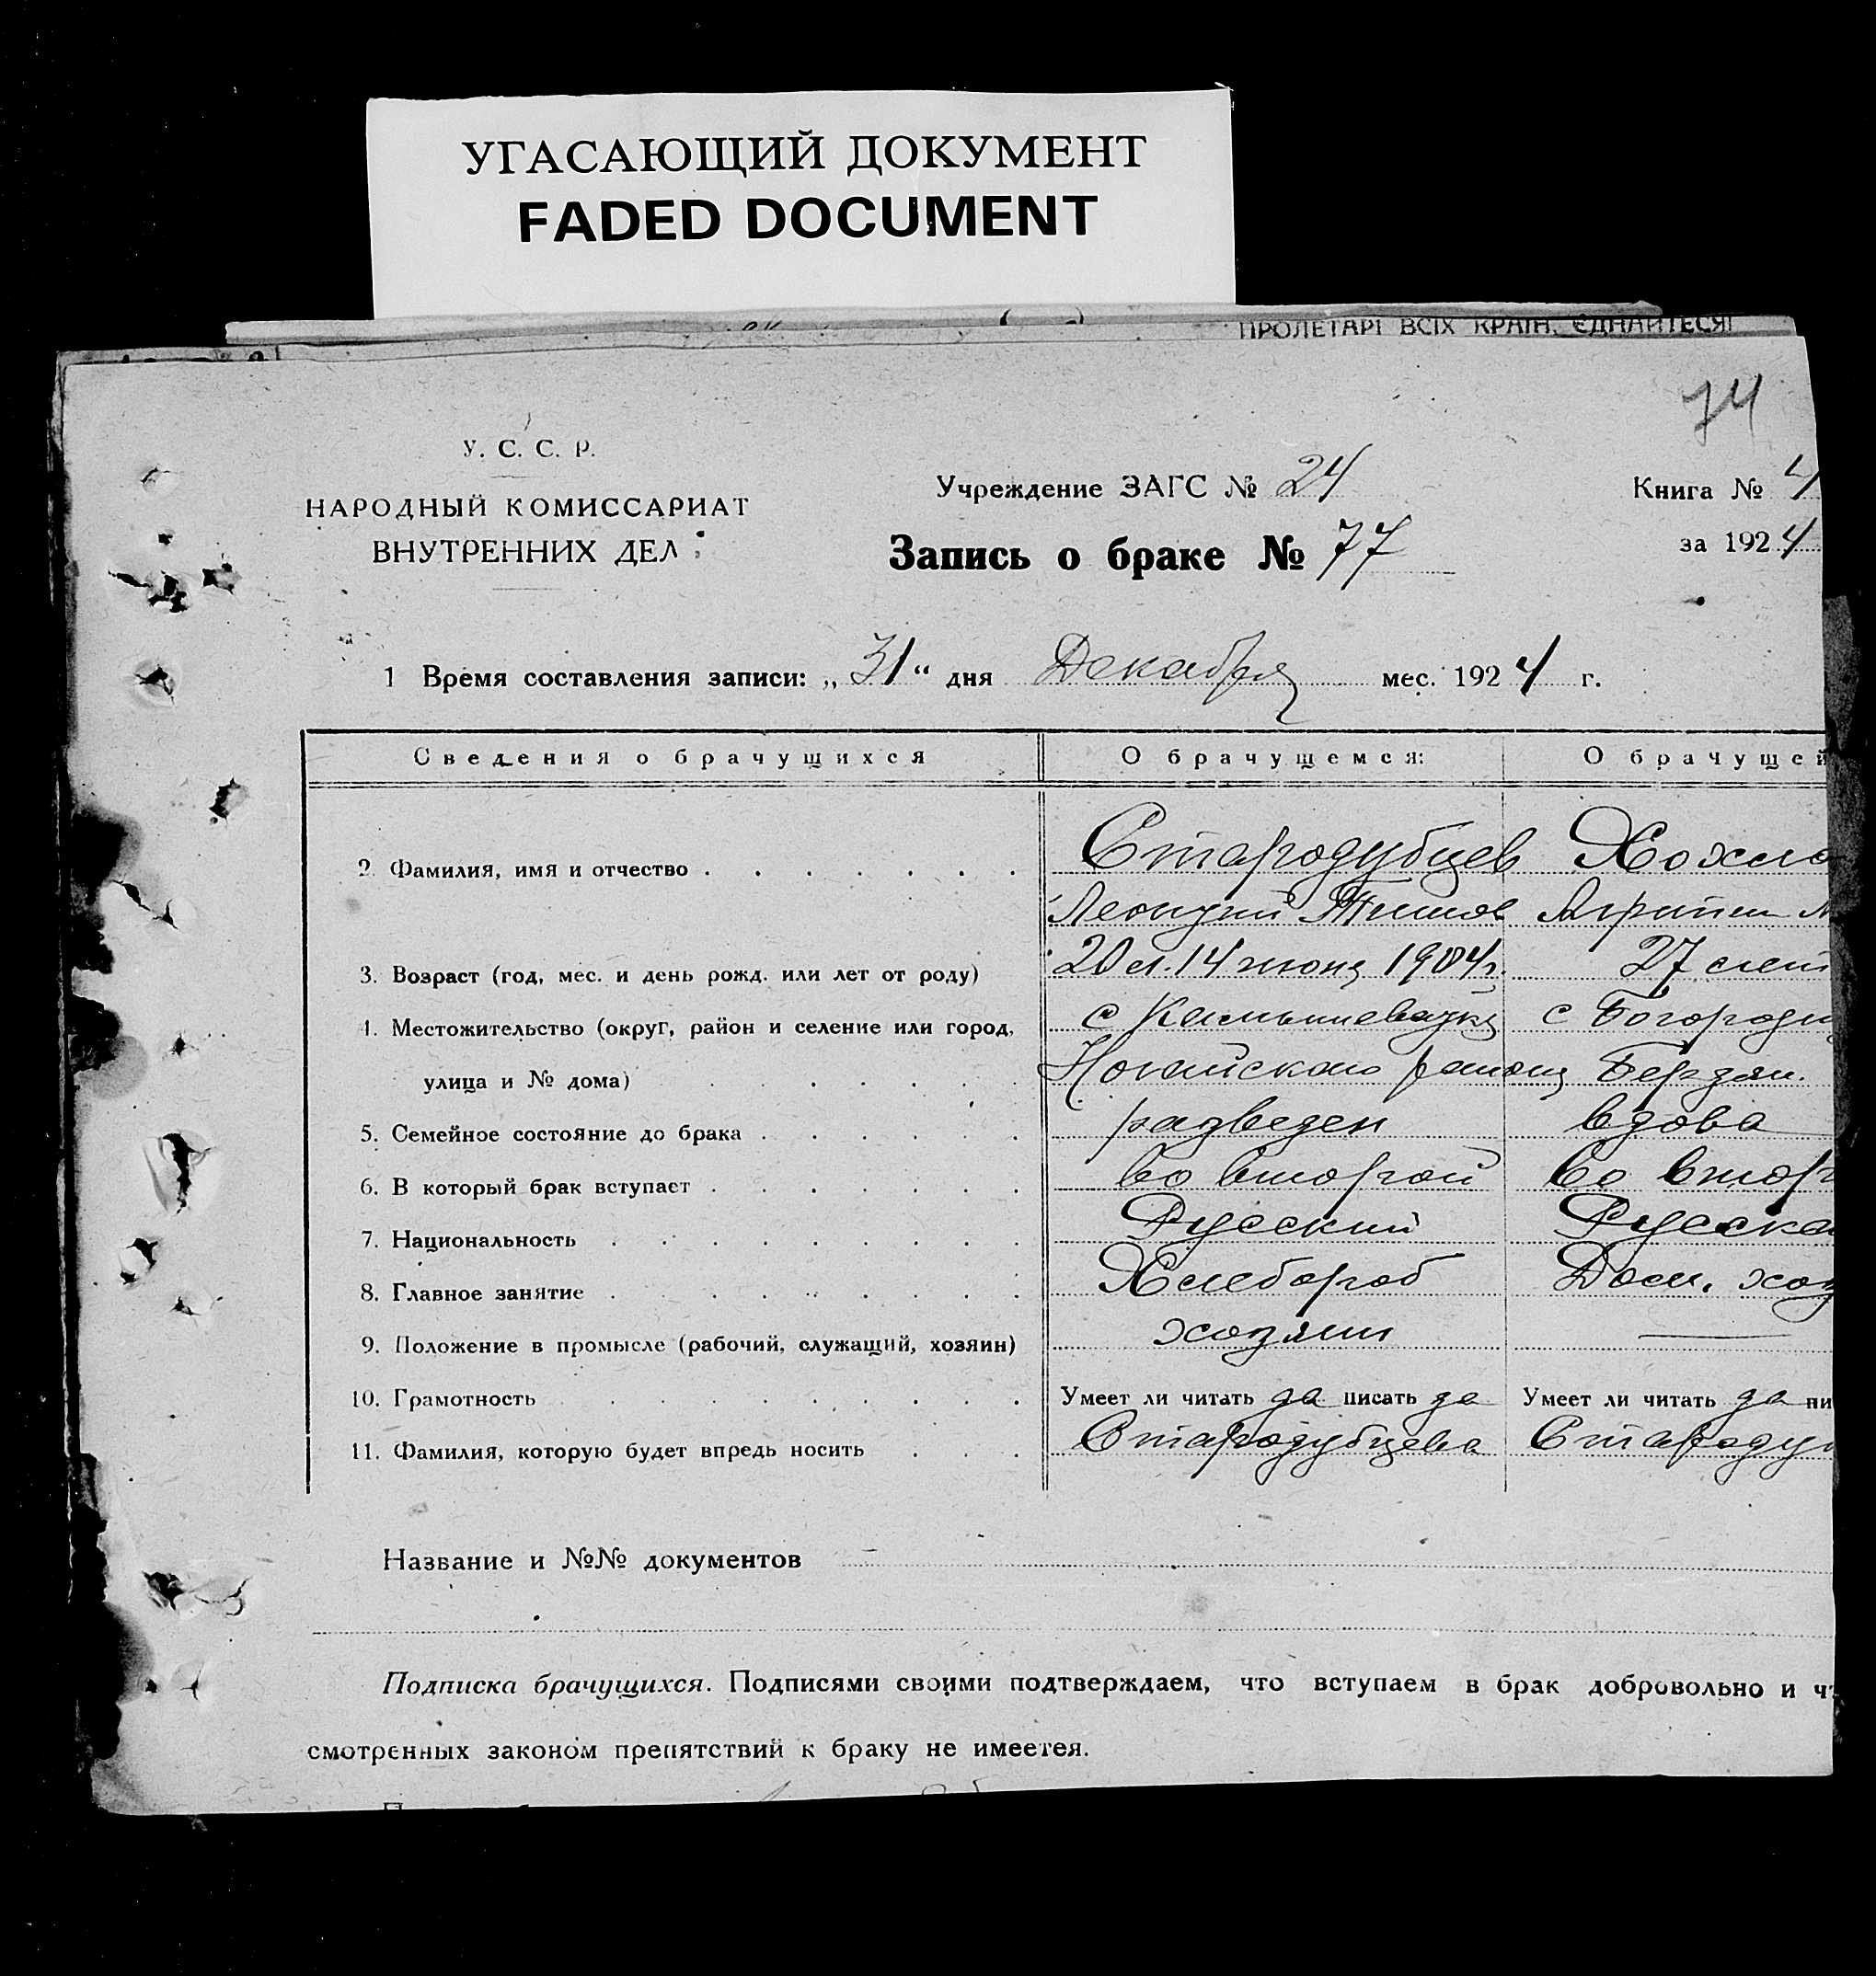 УГАСАЮЩИЙ ДОКУМЕНТ
FADED DOCUMENT
ПРОЛЕТАРІ ВСІХ КРАЇН, ЄДНАЙТЕСЯ!
74
У. С. С. Р.
НАРОДНЫЙ КОМИССАРИАТ
ВНУТРЕННИХ ДЕЛ
Учреждение ЗАГС № 24
Книга № 4
Запись о браке № 77
за 1924
1 Время составления записи: „31“ дня Декабря мес. 1924 г.
Сведения о брачущихся О брачущемся: О брачущей
2. Фамилия, имя и отчество Стародубцев Хохло
Тимов
3. Возраст (год, мес. и день рожд. или лет от роду) 20 л. 14 июня 1904 г. 27 лет
4. Местожительство (округ, район и селение или город, с Камышеватка с Богород
улица и № дома) Ногайского района Бердян.
5. Семейное состояние до брака разведен вдова
6. В который брак вступает во второй во втор
7. Национальность Русский Русска
8. Главное занятие Хлебороб Дом. хоз
9. Положение в промысле (рабочий, служащий, хозяин) хозяин —
10. Грамотность Умеет ли читать да писать да Умеет ли читать да пи
11. Фамилия, которую будет впредь носить Стародубцева Стародуб
Название и №№ документов —
Подписка брачущихся. Подписями своими подтверждаем, что вступаем в брак добровольно и чт
смотренных законом препятствий к браку не имеется.